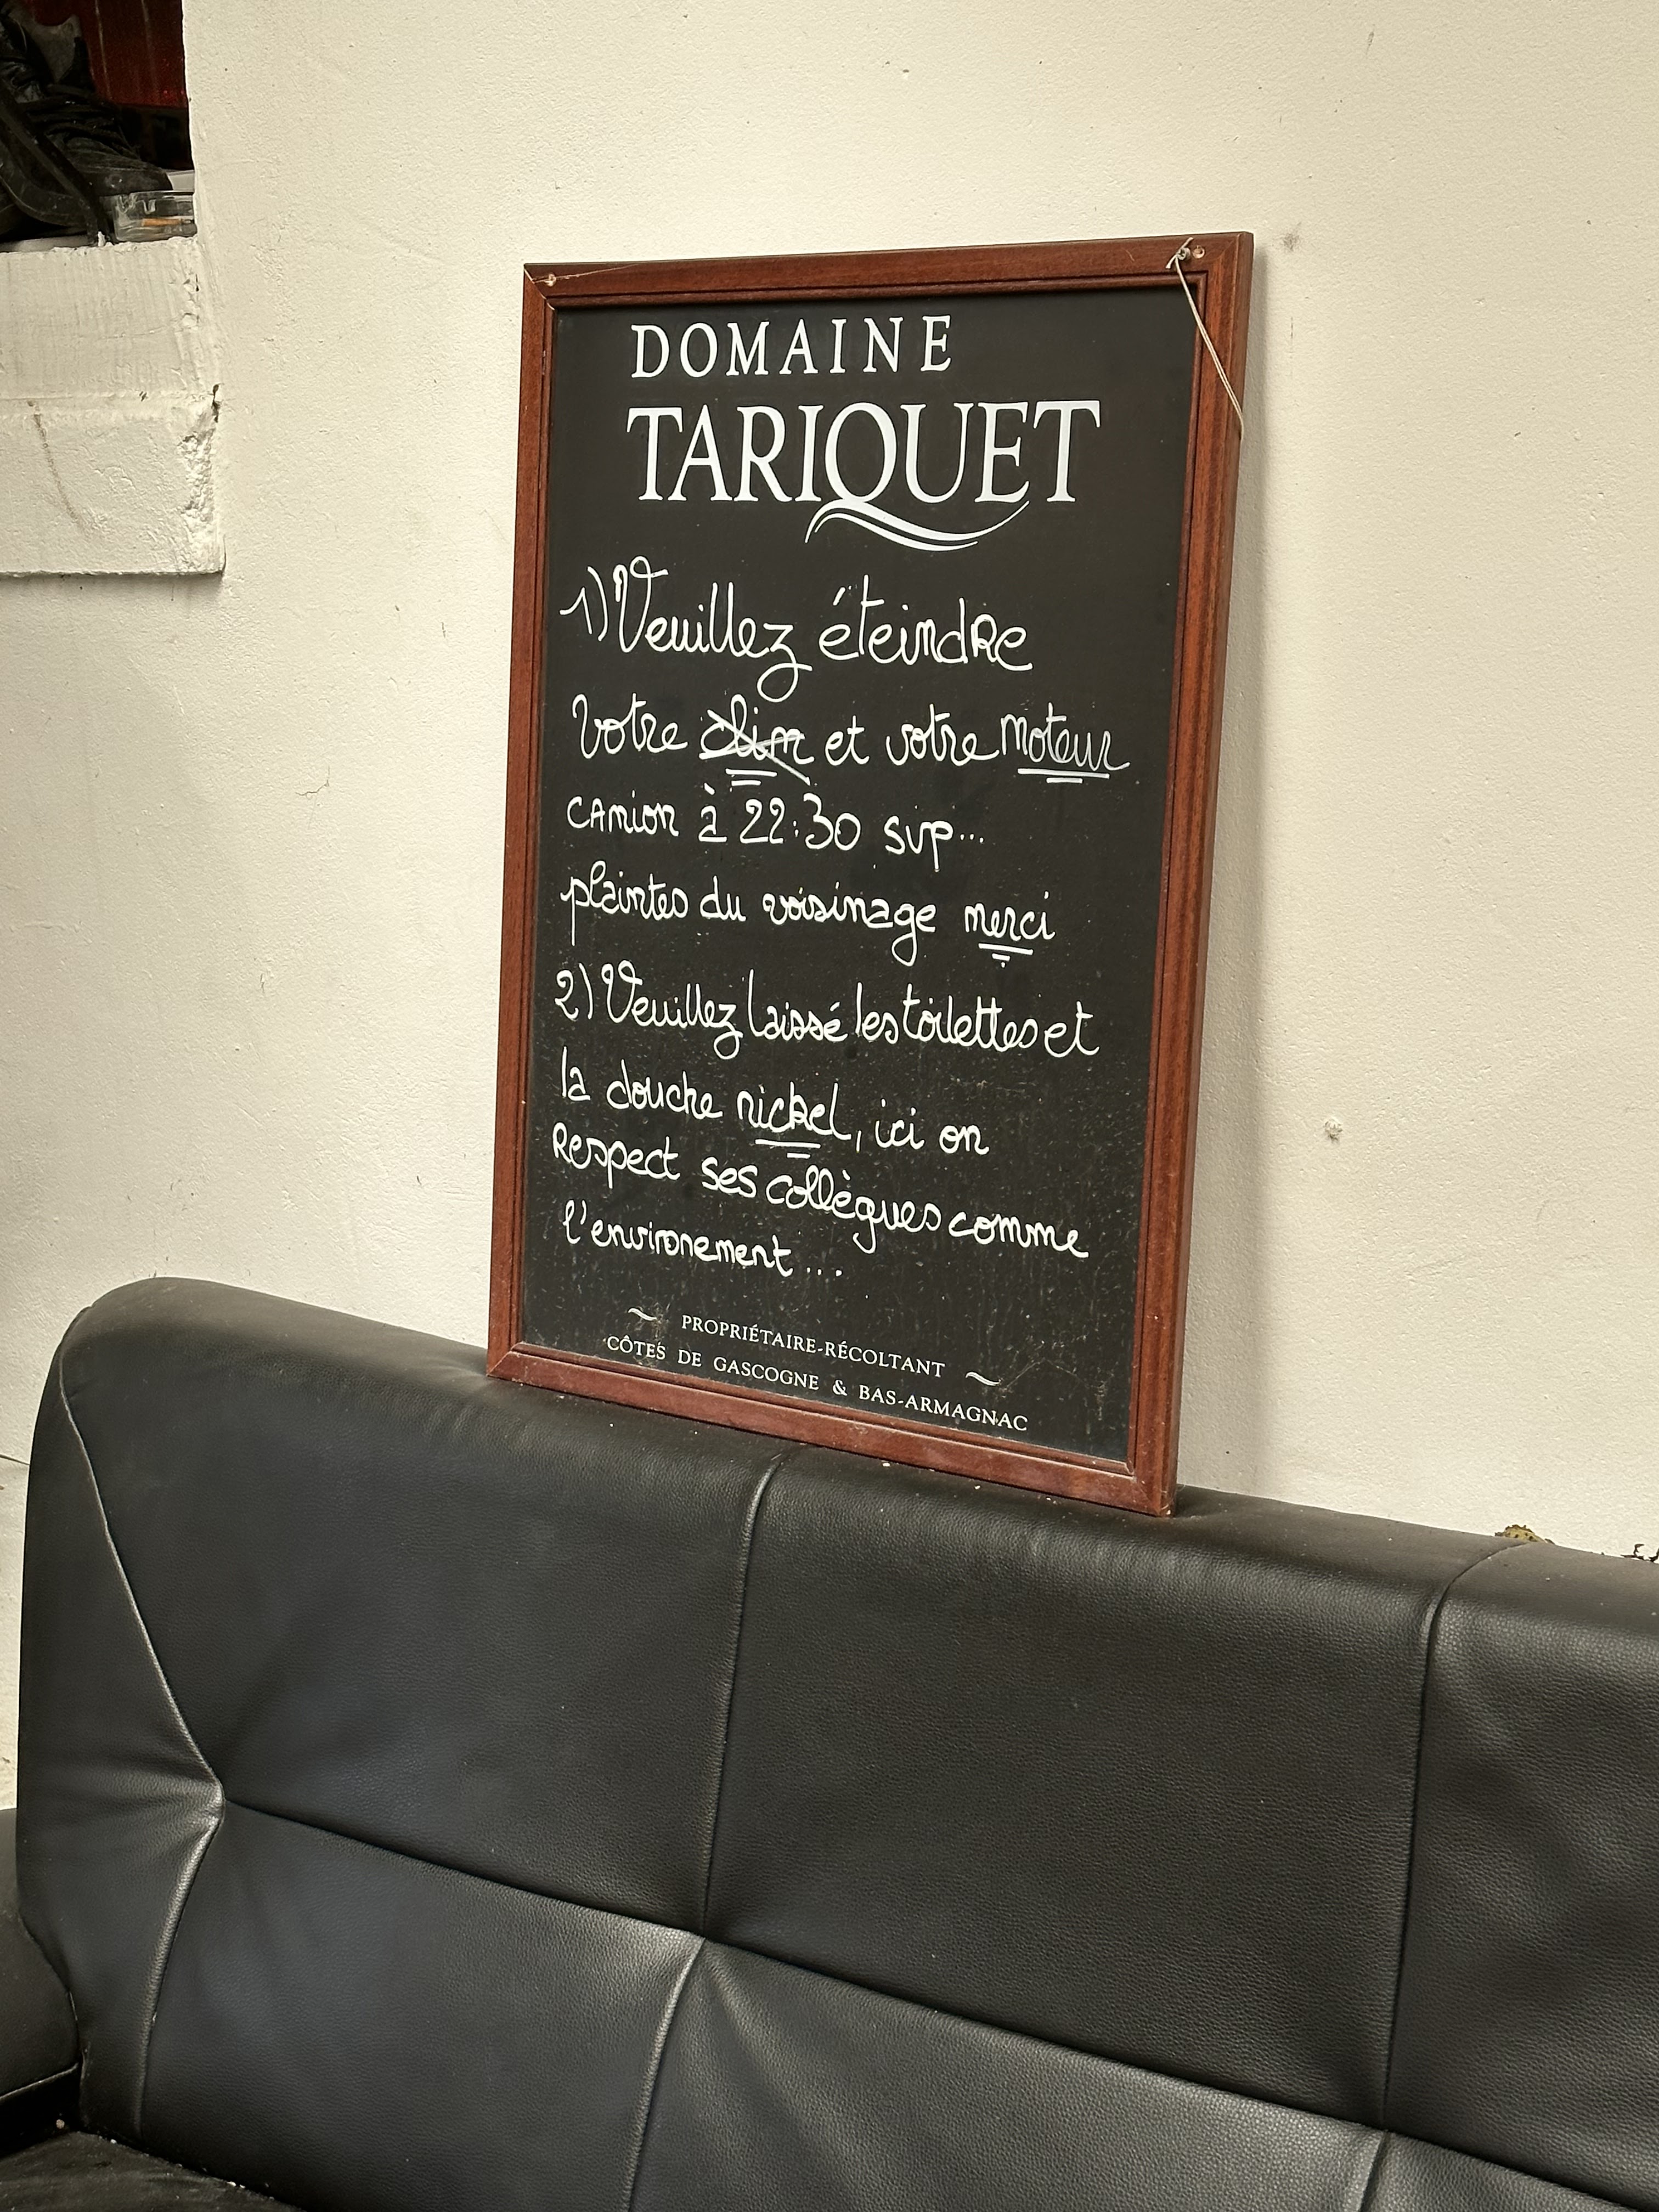 DOMAINE
TARIQUET
1) Veuillez éteindre
votre clim et votre moteur
camion à 22:30 svp...
plaintes du voisinage merci
2) Veuillez laissé les toilettes et
la douche nickel, ici on
Respect ses collègues comme
l'environement...
PROPRIÉTAIRE-RÉCOLTANT
CÔTES DE GASCOGNE & BAS-ARMAGNAC